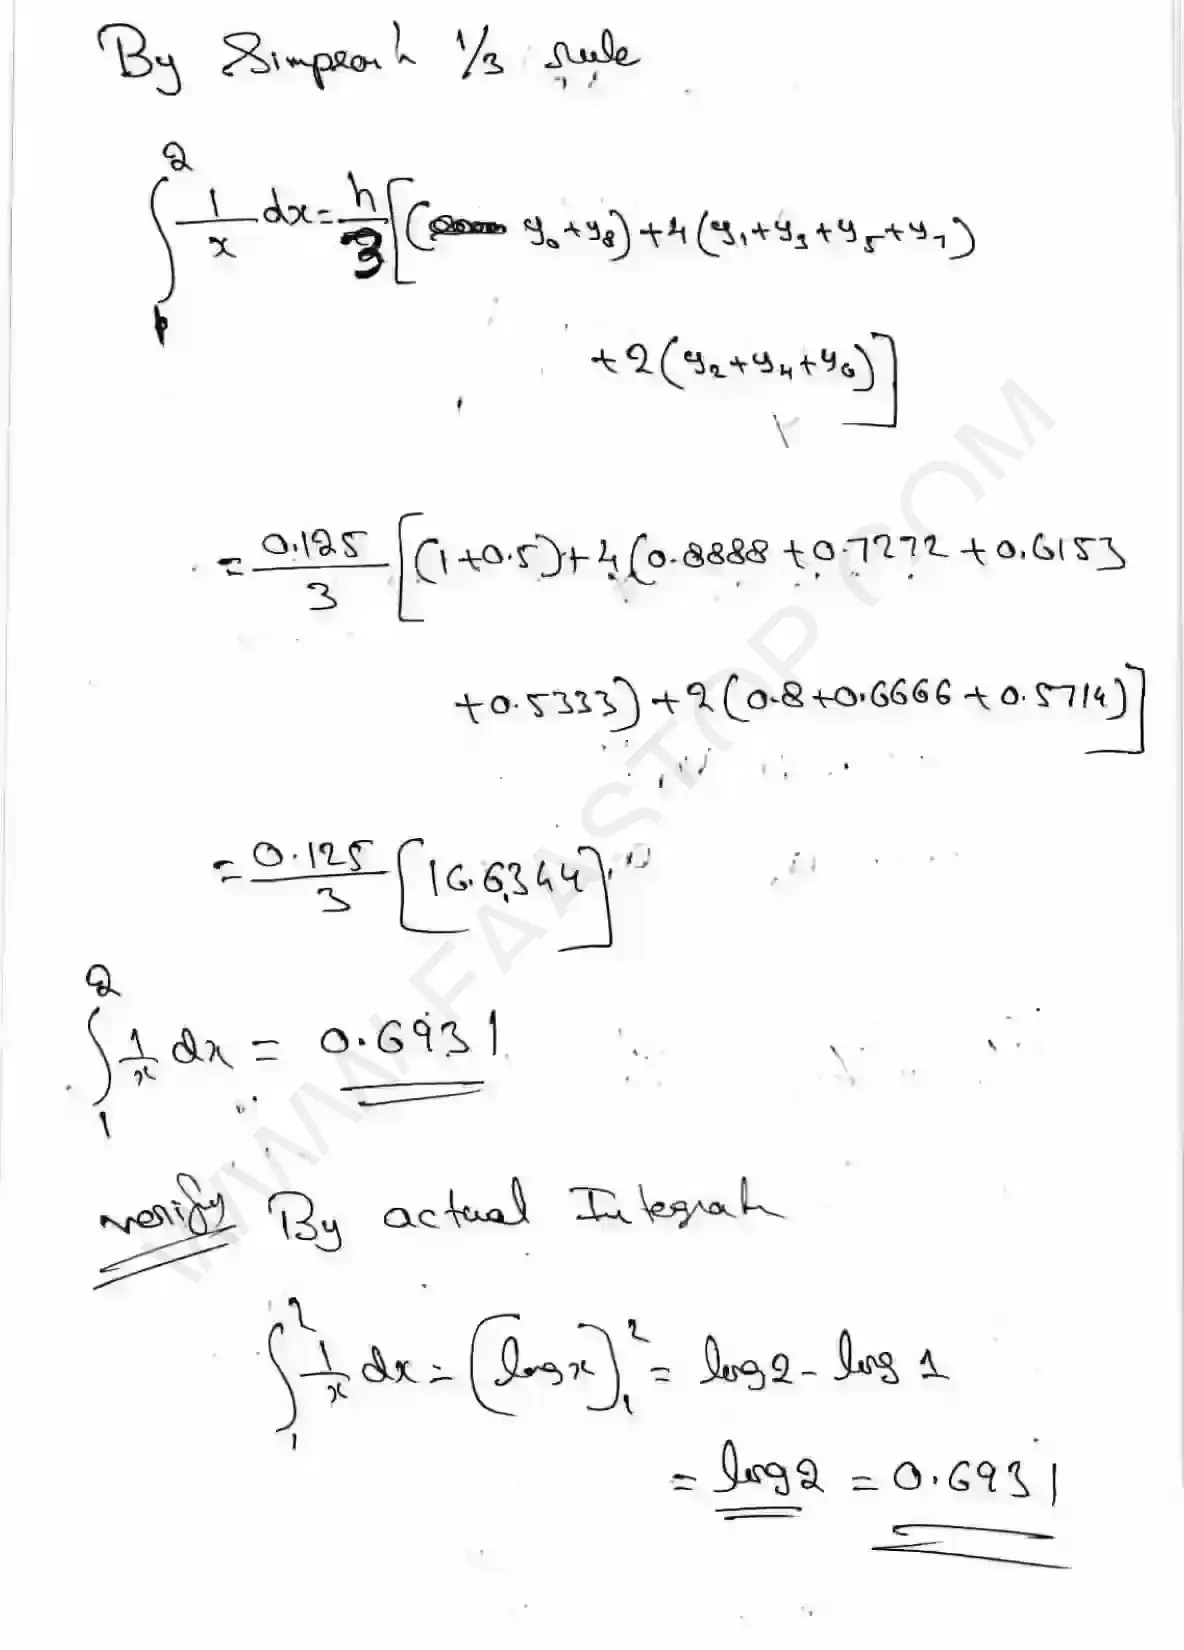 By Simpson 1/3 rule
∫₁² 1/x dx = h/3 [(y₀+y₈)+4(y₁+y₃+y₅+y₇)
+2(y₂+y₄+y₆)]
= 0.125/3 [(1+0.5)+4(0.8888+0.7272+0.6153
+0.5333)+2(0.8+0.6666+0.5714)]
= 0.125/3 [16.6344]
∫₁² 1/x dx = 0.6931
verify By actual Integrah
∫₁² 1/x dx = (log x)₁² = log 2 - log 1
= log 2 = 0.6931
WWW.FAASTOP.COM